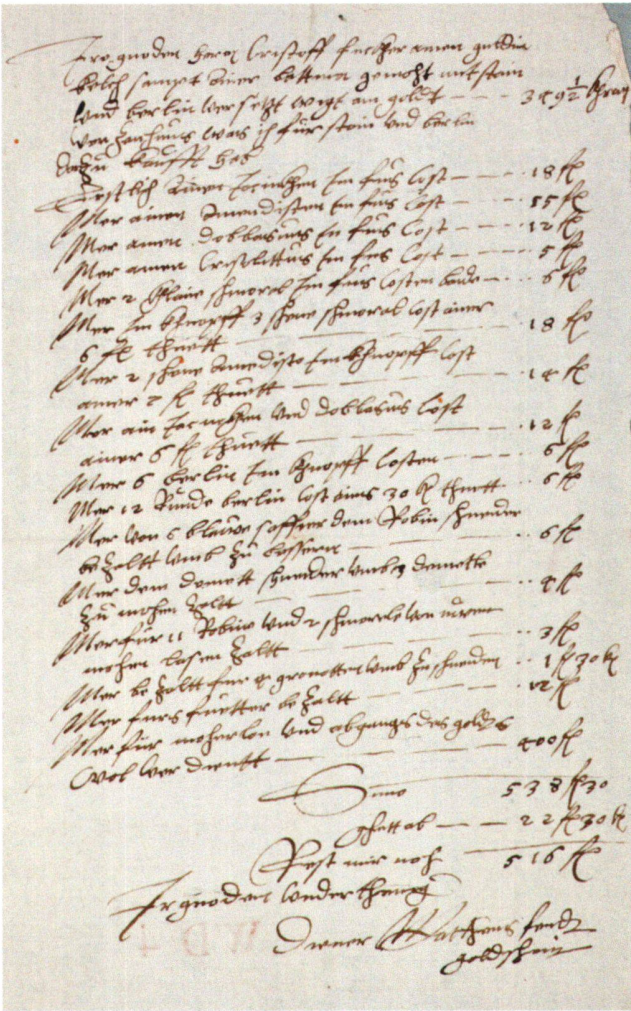 Iro gnoden herrn Cristoff fuckher amen guldin
kelch sampt ainer bettena gemoht mit stain
und berlin versetzt wigt an goldt — — 349 1/2 khronen
was ich für stain und berlin
dozu kaufft hab
Erstlich ainen Jacinkhen Im fuss cost — — 18 fl
Mer ainen amedisten Im fuss cost — — 55 fl
Mer ainen doblasius Im fuss cost — — 12 fl
Mer ainen Crisolittus Im fuss cost — — 5 fl
Mer 2 khlaine schmoral Im fuss costen baide — 6 fl
Mer Im khnopff 3 schene schmoral cost ainer
6 fl thuett — — 18 fl
Mer 2 schene amedisto Im khnopff cost
ainer 7 fl thuett — — 14 fl
Mer ain Jacinkhen und doblasius cost
ainer 6 fl thuett — — 12 fl
Mer 6 berlin Im khnopff costen — — 6 fl
Mer 12 Runde berlin cost ains 30 k thuett — 6 fl
Mer von 6 blawe saffier dem Robin schneider
bezaltt umb zu bessern — — 6 fl
Mer dem demott schneider umb 3 demotte
zu mohen zaltt — — 4 fl
Mer für 11 Robin und 2 schmorele von
mohen lasen zaltt — — 3 fl
Mer bezaltt fur 4 gronotten umb zu schneiden — 1 fl 30 k
Mer furs fuetter bezaltt — — 12 fl
Mer für moherlon und abgangs des golds
wol verdientt — — 400 fl
Suma 538 fl 30
ghett ab — — 22 fl 30 k
Rest mir noh 516 fl
Ir gnoden underthenig
Diener
goldschmid